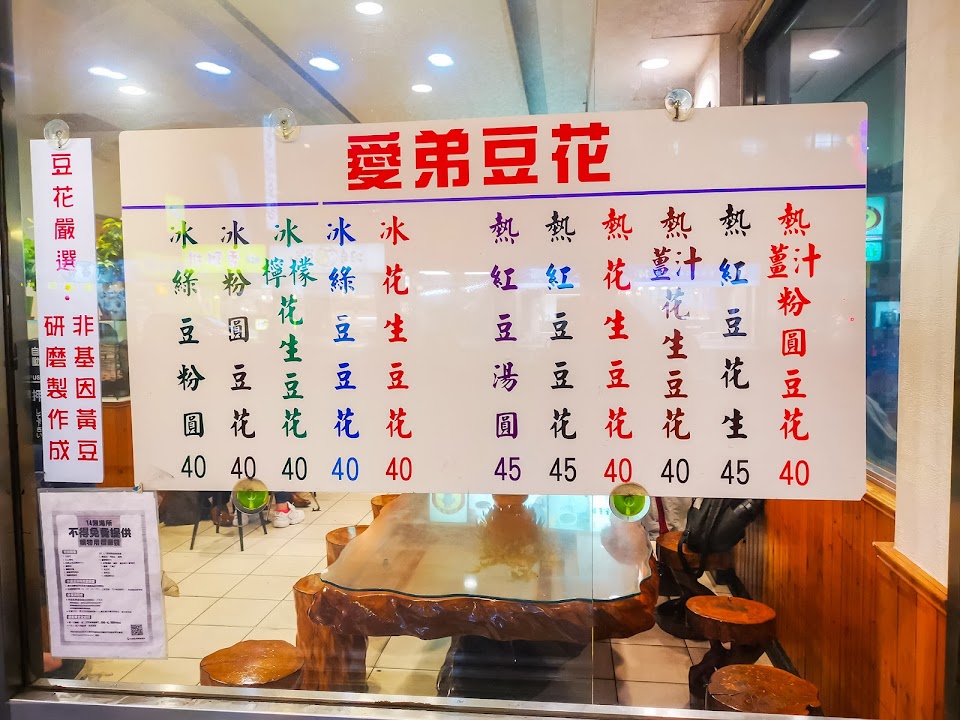 愛弟豆花
熱薑汁粉圓豆花 40
熱紅豆花生 45
熱薑汁花生豆花 40
熱花生豆花 40
熱紅豆豆花 45
熱紅豆湯圓 45
冰花生豆花 40
冰綠豆豆花 40
冰檸檬花生豆花 40
冰粉圓豆花 40
冰綠豆粉圓 40
豆花嚴選・
非基因黃豆
研磨製作成
14類場所
不得免費提供
購物用塑膠袋